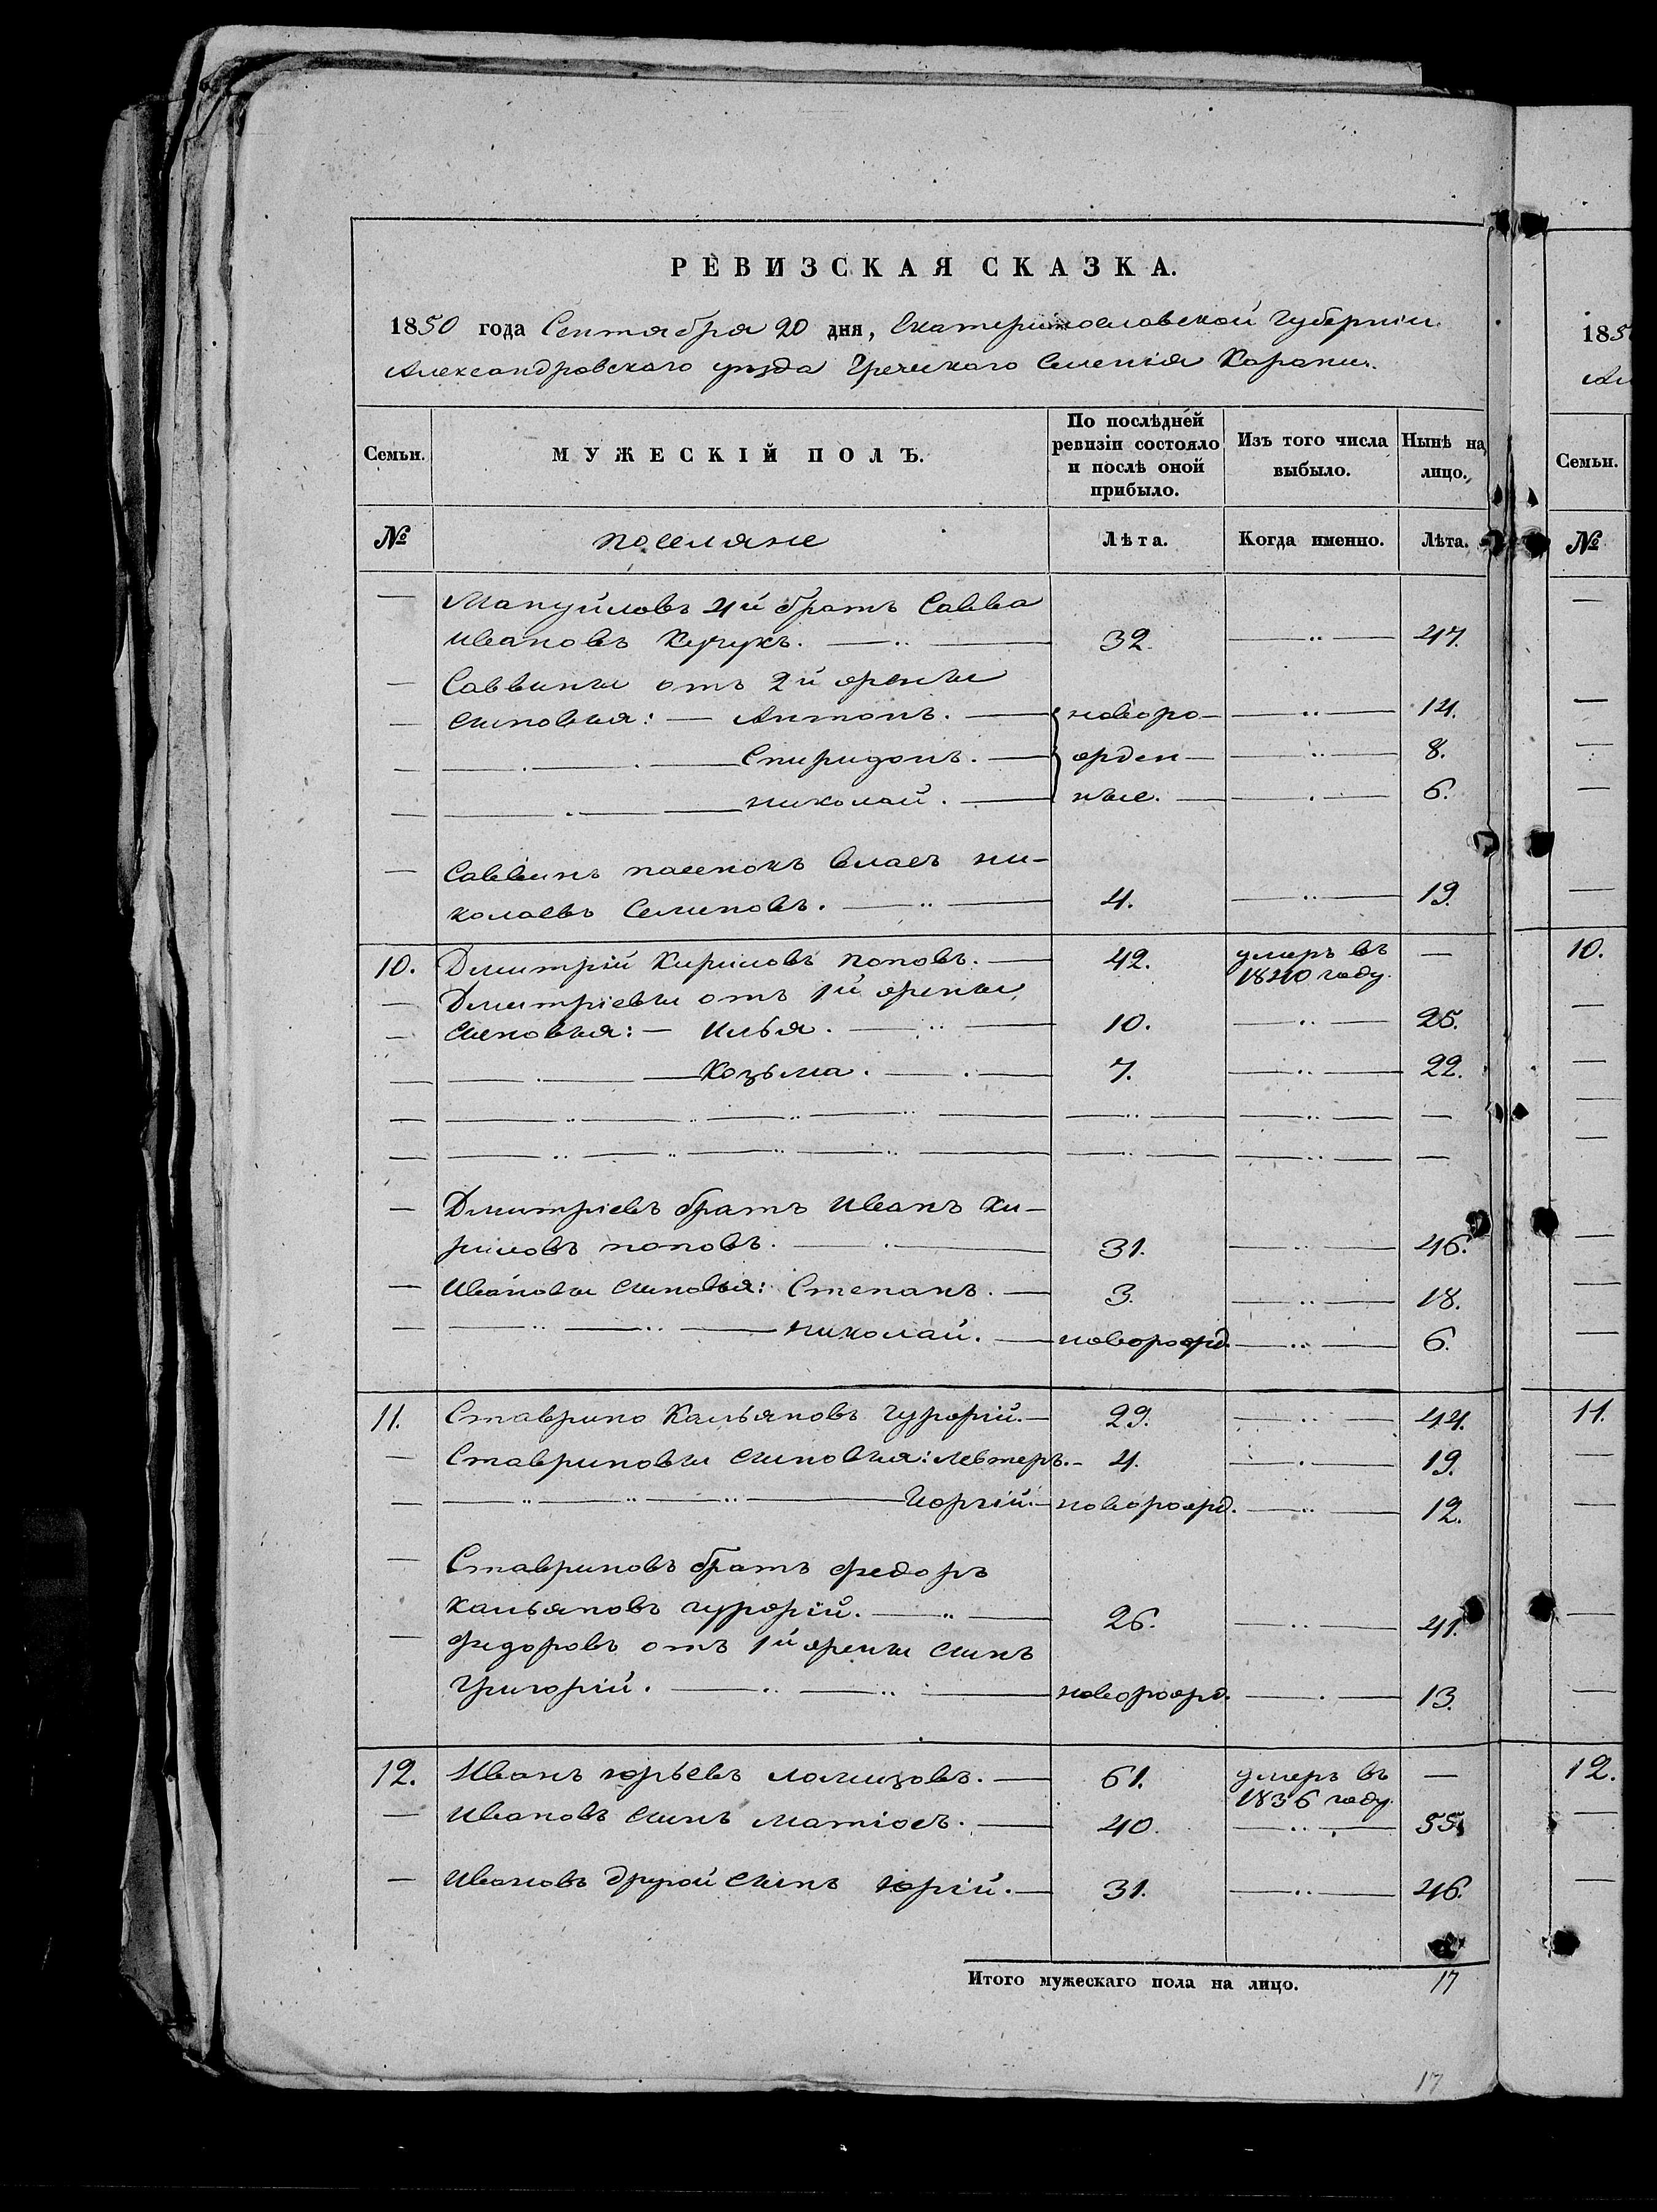 РЕВИЗСКАЯ СКАЗКА.
1850 года Сентября 20 дня, Екатеринославской Губернiи
Александровского уѣзда Греческого Селенiя Карани.
Семьи.
МУЖЕСКІЙ ПОЛЪ.
По послѣдней ревизіи состояло и послѣ оной прибыло.
Изъ того числа выбыло.
Нынѣ на лицо.
№
поселяне
Лѣта.
Когда именно.
Лѣта.
— Мануйловъ 4й братъ Савва
Ивановъ Кучукъ. — 32. — 47.
— Саввины отъ 2й жены
— сыновья: — Антонъ. — новоро- — 14.
— Спиридонъ. — жден- — 8.
— Николай. — ные. — 6.
— Саввинъ пасенокъ Власъ Ни-
колаевъ Семеновъ. — 4. — 19.
10. Дмитрій Кириловъ Поповъ. — 42. умеръ въ —
1840 году.
— Дмитріевы отъ 1й жены
— сыновья: — Илья. — 10. — 25.
— Козьма. — 7. — 22.
— Дмитріевъ братъ Иванъ Ки-
риловъ Поповъ. — 31. — 46.
— Ивановы сыновья: Степанъ. — 3. — 18.
— Николай. — новорожд. — 6.
11. Ставрино Кальяновъ Чурфій. — 29. — 44.
— Ставриновы сыновья: Левтеръ. — 4. — 19.
— Юргій. — новорожд. — 12.
— Ставриновъ братъ Федоръ
Кальяновъ Чурфій. — 26. — 41.
— Федоровъ отъ 1й жены сынъ
Григорій. — новорожд. — 13.
12. Иванъ Юрьевъ — 61. умеръ въ —
1836 году.
— Ивановъ сынъ Матіосъ. — 40. — 55.
— Ивановъ другой сынъ Юрій. — 31. — 46.
Итого мужескаго пола на лицо. 17
17
185
Семьи.
№
10.
11.
12.